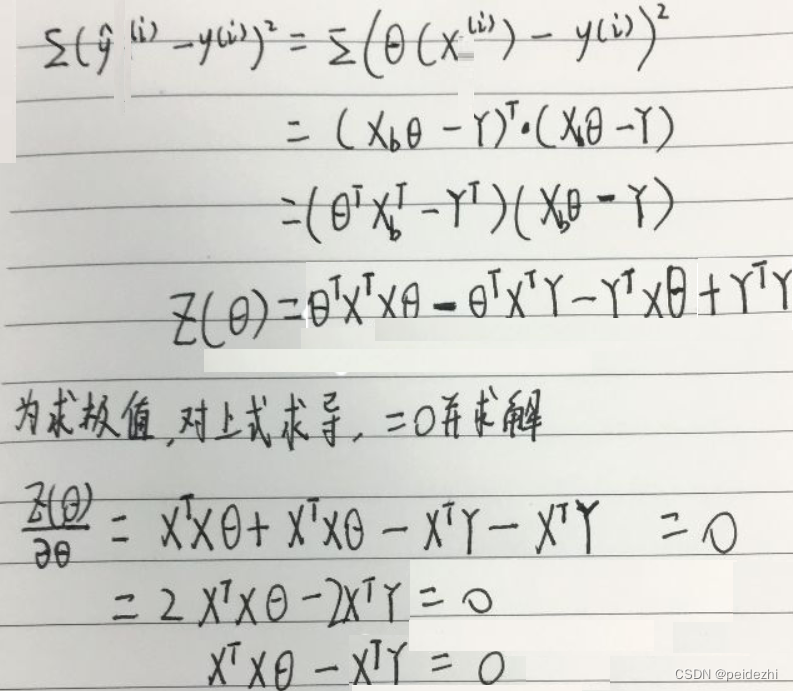 Σ(ŷ⁽ⁱ⁾ - y(i))² = Σ(θ(x⁽ⁱ⁾) - y(i))²
= (X_bθ - Y)ᵀ·(X_bθ - Y)
= (θᵀX_bᵀ - Yᵀ)(X_bθ - Y)
Z(θ) = θᵀXᵀXθ - θᵀXᵀY - YᵀXθ + YᵀY
为求极值,对上式求导, =0并求解
Z(θ)/∂θ = XᵀXθ + XᵀXθ - XᵀY - XᵀY = 0
= 2XᵀXθ - 2XᵀY = 0
XᵀXθ - XᵀY = 0
CSDN @peidezhi